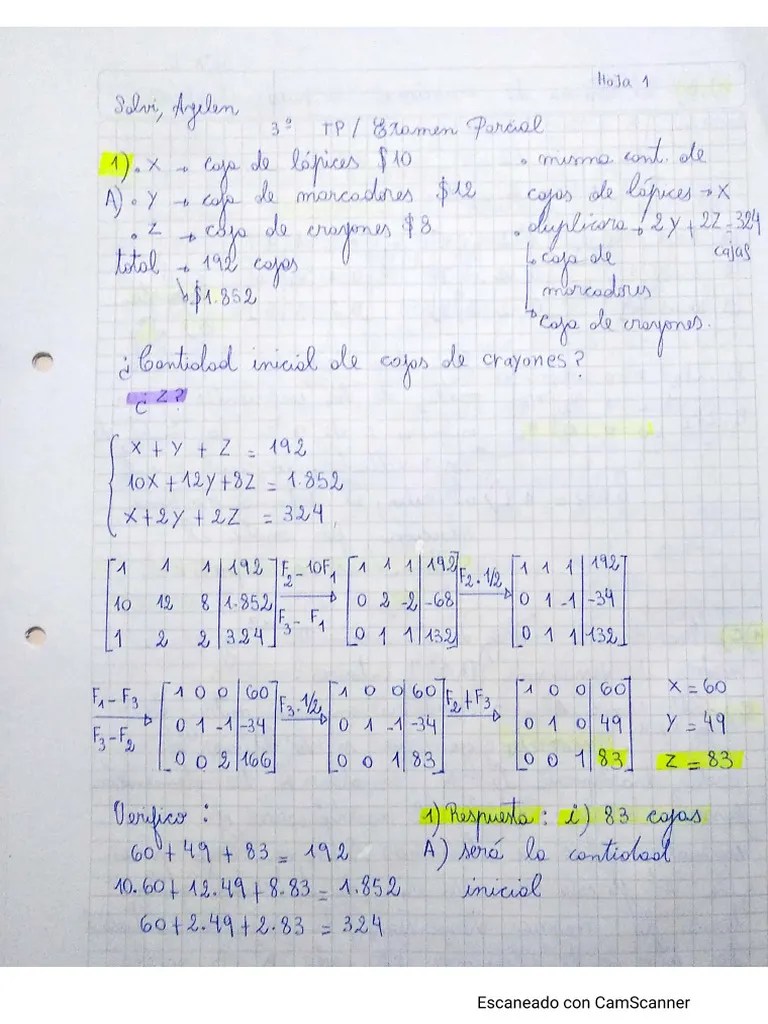 Hoja 1
Salvi, Ayelen
3º TP / Examen Parcial
1) • X → caja de lápices $10
A) • Y → caja de marcadores $12
• Z → caja de crayones $8
total → 192 cajas
↳ $1.852
• misma cant. de
cajas de lápices → X
• duplicara → 2Y + 2Z = 324
cajas
↳ caja de
marcadores
↳ caja de crayones.
¿Cantidad inicial de cajas de crayones?
¿Z?
X + Y + Z = 192
10X + 12Y + 8Z = 1.852
X + 2Y + 2Z = 324
1 1 1 | 192 F2 - 10F1 1 1 1 | 192 F2 . 1/2 1 1 1 | 192
10 12 8 | 1.852 → 0 2 -2 | -68 → 0 1 -1 | -34
1 2 2 | 324 F3 - F1 0 1 1 | 132 0 1 1 | 132
F1 - F3 1 0 0 | 60 F3 . 1/2 1 0 0 | 60 F2 + F3 1 0 0 | 60 X = 60
→ 0 1 -1 | -34 → 0 1 -1 | -34 → 0 1 0 | 49 Y = 49
F3 - F2 0 0 2 | 166 0 0 1 | 83 0 0 1 | 83 Z = 83
Verifico :
60 + 49 + 83 = 192
10.60 + 12.49 + 8.83 = 1.852
60 + 2.49 + 2.83 = 324
1) Respuesta : i) 83 cajas
A) será la cantidad
inicial
Escaneado con CamScanner